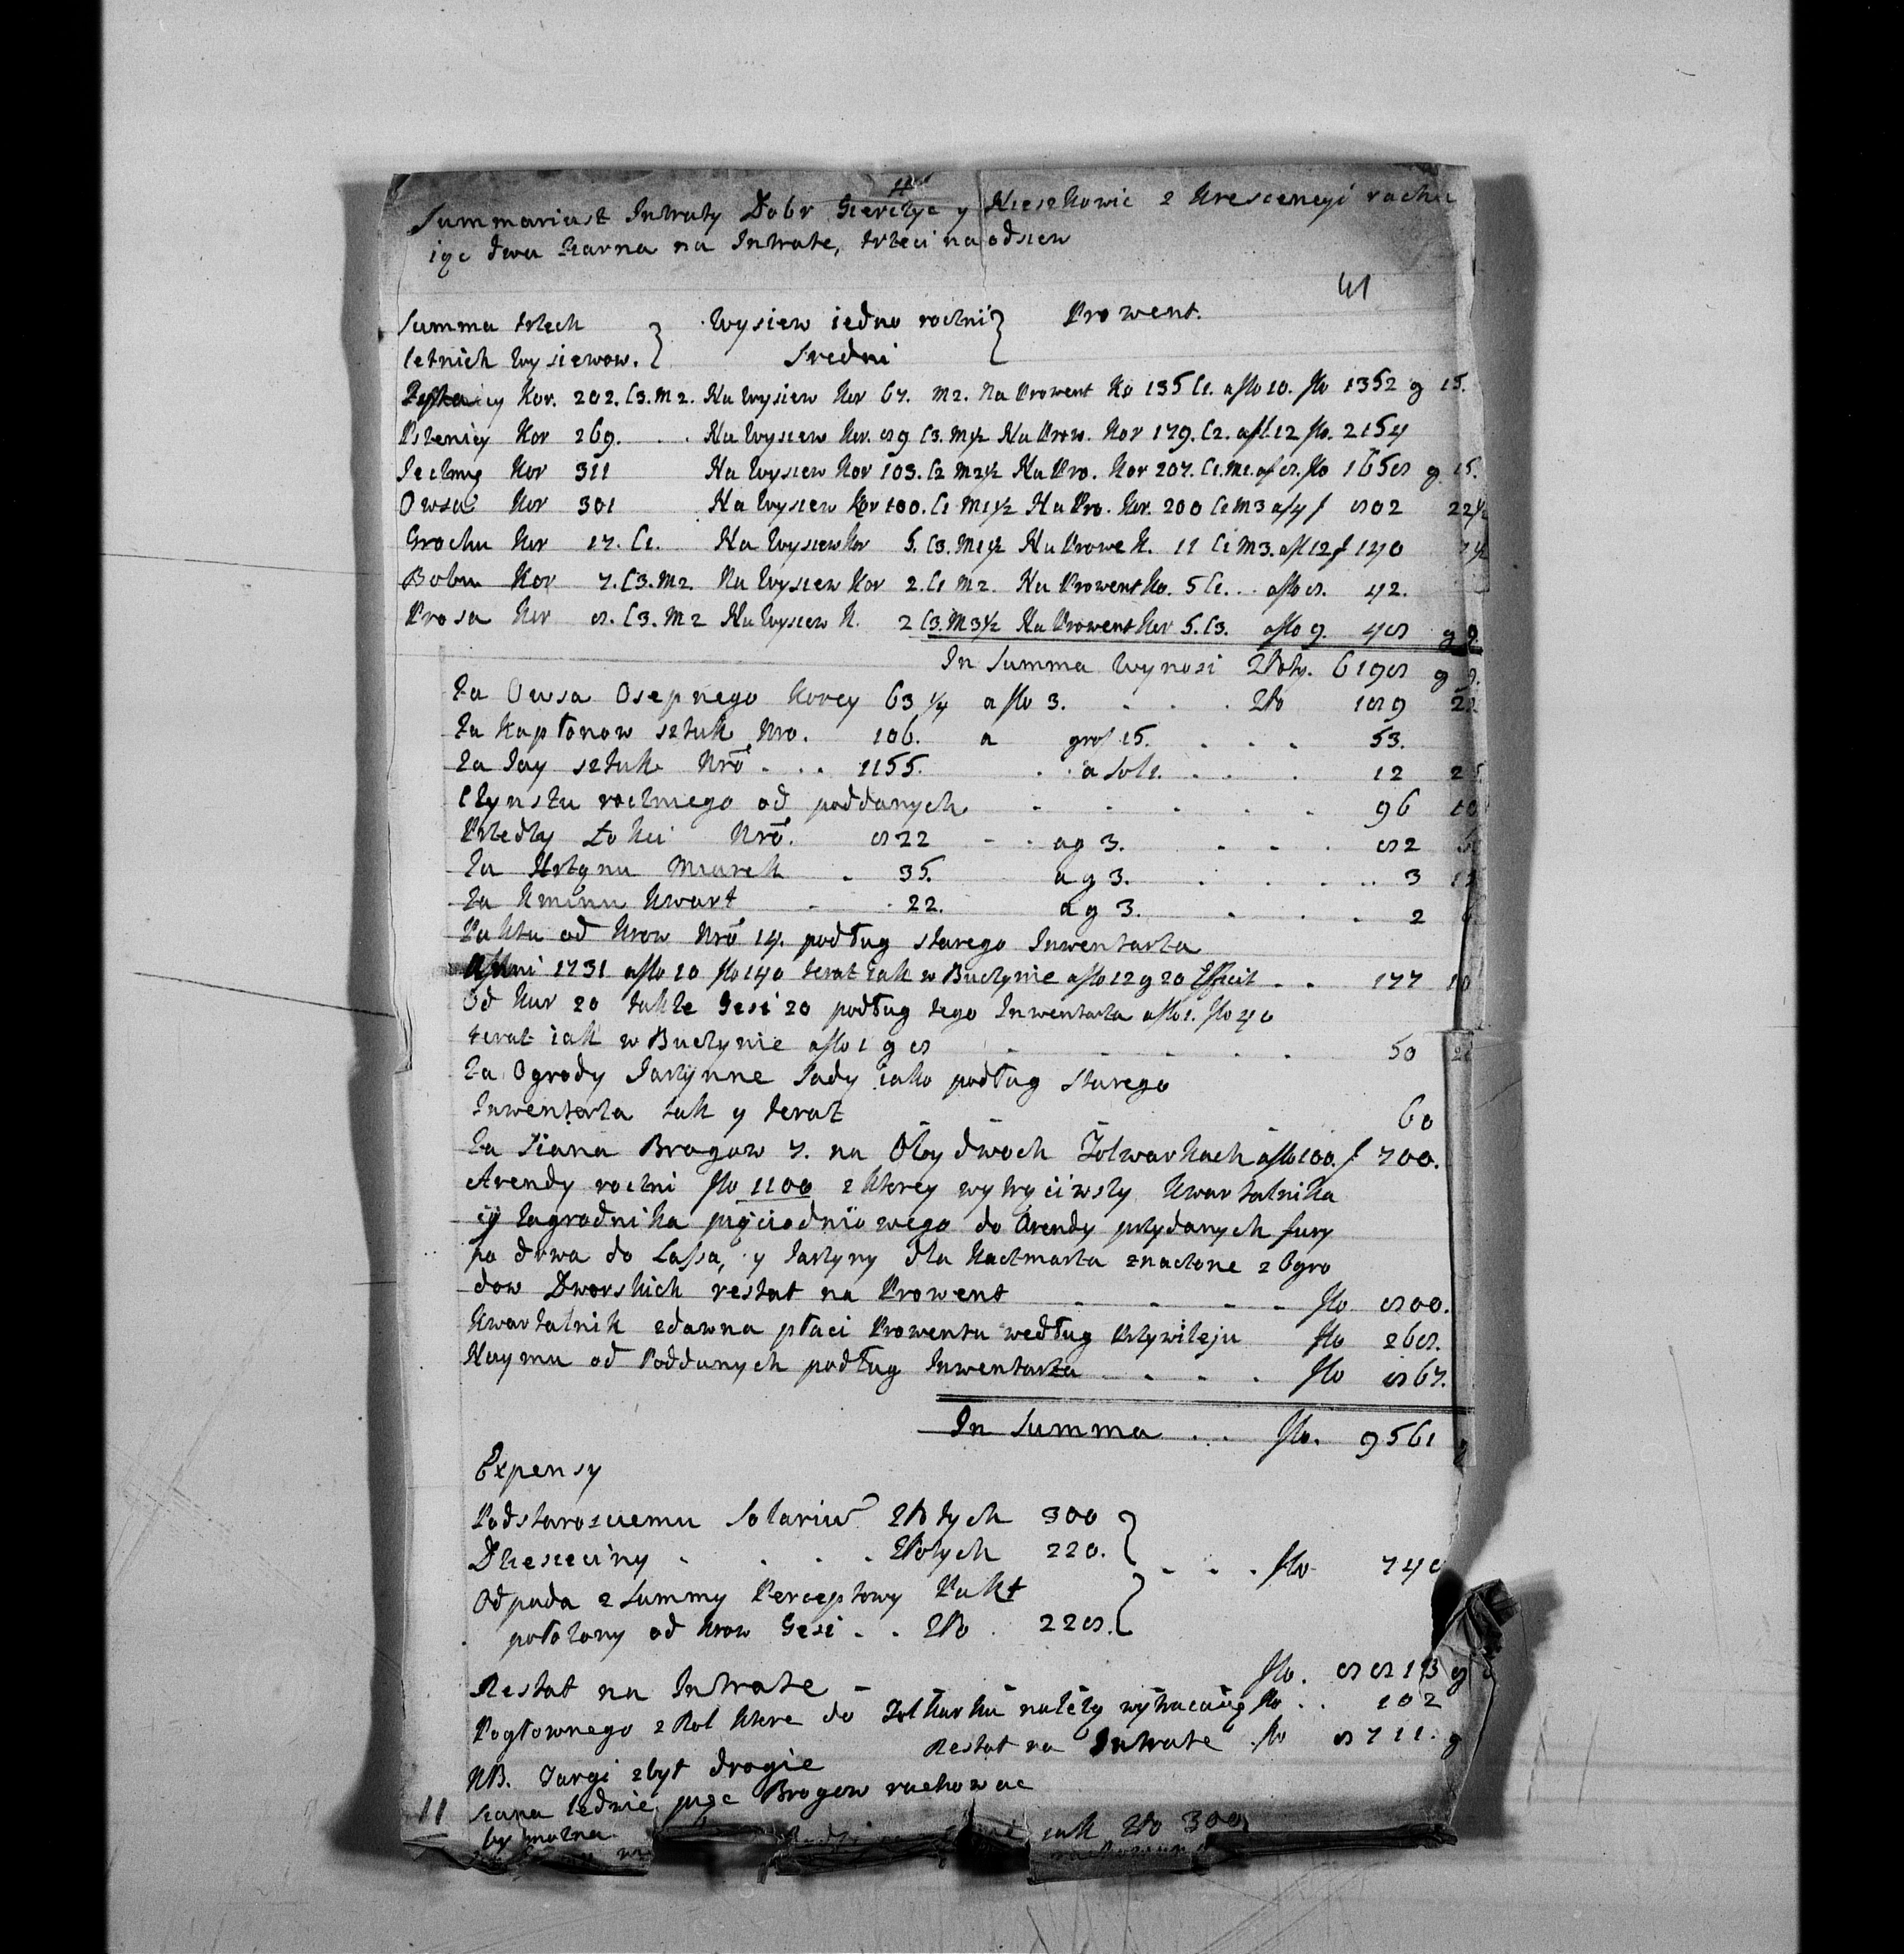 Summariusz Intraty Dobr Gierczyc y Nieszkowic z Krescencyi rachu
iąc dwa Ziarna na Intrate, trzeci na odsiew
41
Summa trzech } Wysiew iedno roczni } Prowent.
letnich Wysiewow. } Sredni
Kor. 202. C3. M2. Na Wysiew Kor 67. M2. Na Prowent Ko 135 C1. a flo 10. flo 1352 g 15.
Pszenicy Kor 269. . . Na Wysiew Kor. 89 C3. M½ Na Prow. Kor 179. C2. a fl. 12 flo. 2154
Ieczmę Kor 311 Na Wysiew Kor 103. C2 M2½ Na Pro. Kor 207. C1. M1. a f 8. flo 1658 g. 15.
Owsa Kor 301 Na Wysiew Kor 100. C1 M1½ Na Pro. Kor. 200 C1 M3 a f 4 f 802 22½
Grochu Kor 17. C1. Na Wysiew Kor 5. C3. M1½ Na Prowe K. 11 C1 M3. a fl 12 f 140 7½
Bobu Kor 7. C3. M2. Na Wysiew Kor 2. C1 M2. Na Prowent Ko. 5 C1. . . a flo 8. 42.
Prosa Kor 8. C3. M2 Na Wysiew K. 2 C3. M3½ Na Prowent Kor 5. C3. a flo 9. 48 g 9.
In Summa Wynosi Złoty. 6198 g 9.
Za Owsa Osepnego Korcy 63 ¼ a flo 3. . . . Zło 189 22
Za Kapłonow sztuk Nro. 106. a gros 15. . . . 53.
Za Iay sztuk Nrō . . . 1155. . . a sol 1. . . . 12 25
Czynszu rocznego od poddanych . . . . . 96 10
Przędzy Łokci Nrō. 822 - . a g 3. . . . 82 6
Za Krzynu Miarek . 35. a g 3. . . . . . 3 15
Za Kminu Kwart . . 22. a g 3. . . . 2 6
Paktu od Krow Nrō 14. podług starego Inwentarza
Anni 1731 a flo 10 flo 140 teraz iak w Buczynie a flo 12 g 20 Efficit . . 177 10
Od Kur 20 takze Gesi 20 podług tego Inwentarza a flo 1. flo 40
teraz iak w Buczynie a flo 1 g 8 . . . . . . 50 20
Za Ogrody Iarzynne Sady iako podług Starego
Inwentarza tak y teraz . . . 60
Za Siana Brogow 7. na Oby dwoch Folwarkach a flo 100. f 700.
Arendy roczni flo 1100 z ktorey wytrąciwszy Kwartalnika
y Zagrodnika pięciodniowego do Arendy przydanych fury
po drwa do Lassa, y Iarzyny dla Kaczmarza znaczone z Ogro
dow Dworskich restat na Prowent . . . . flo 800.
Kwartalnik zdawna płaci Prowentu według Przywileju flo 268.
Naymu od Poddanych podług Inwentarza . . . . flo 867.
In Summa . . . flo. 9561 g
Expensy
Podstarosciemu Solariū Złotych 300 }
Dziesięciny . . . . Złotych 220. } . . . flo 740
Odpada z Summy Perceptowy Pakt
położony od Krow Gesi . . Zło . 228. }
Restat na Intrate flo. 8813 g
Pogłownego z Rol ktore do Folwarku należy wytracaiąc flo . . 102
Restat na Intrate . flo 8711. g
NB. Targi zbyt drogie
siana ledwie pięc Brogow rachowac
by mozna
iak Zło 300
11